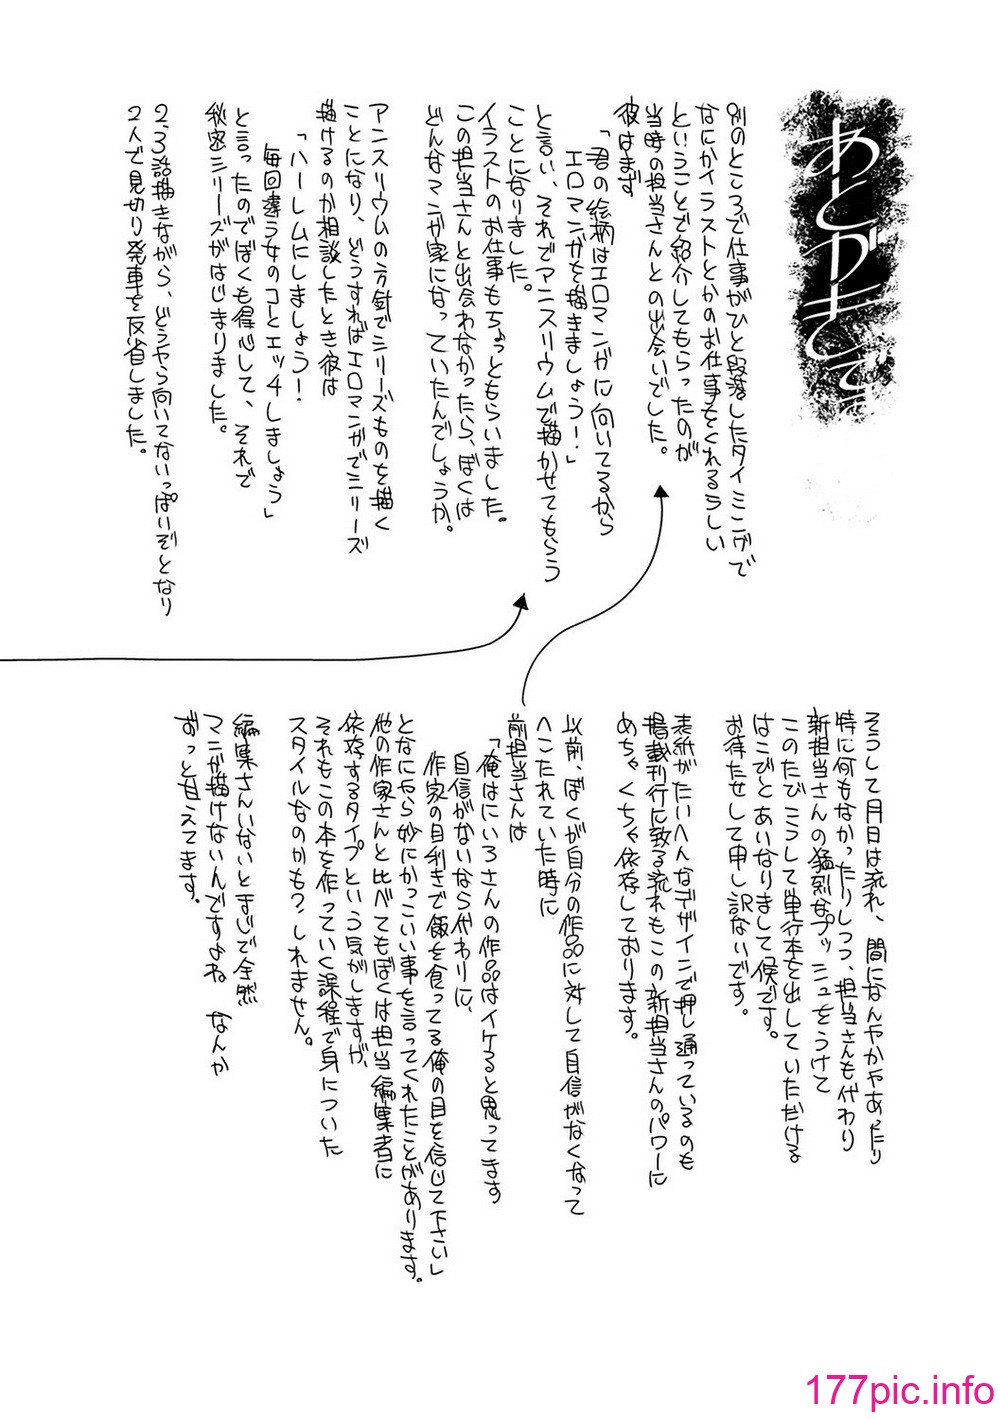 あとがきです
別のところで仕事がひと段落したタイミングで
なにかイラストとかのお仕事をくれるらしい
ということで紹介してもらったのが
当時の担当さんとの出会いでした。
彼はまず
「君の絵柄はエロマンガに向いてるから
エロマンガを描きましょう！」
と言い、それでアンスリウムで描かせてもらう
ことになりました。
イラストのお仕事もちょっともらいました。
この担当さんと出会わなかったら、ぼくは
どんなマンガ家になっていたんでしょうか。
アンスリウムの方針でシリーズものを描く
ことになり、どうすればエロマンガでシリーズ
描けるのか相談したとき彼は
「ハーレムにしましょう！
毎回違う女のコとエッチしましょう」
と言ったのでぼくも得心して、それで
秘密シリーズがはじまりました。
2、3話描きながら、どうやら向いてないっぽいぞとなり
2人で見切り発車を反省しました。
そうして月日は流れ、間になんやかやあったり
特に何もなかったりしつつ、担当さんも代わり
新担当さんの猛烈なプッシュをうけて
このたびこうして単行本を出していただける
はこびとあいなりまして候です。
お待たせして申し訳ないです。
表紙がたいへんなデザインで押し通っているのも
掲載刊行に致る流れもこの新担当さんのパワーに
めちゃくちゃ依存しております。
以前、ぼくが自分の作品に対して自信がなくなって
へこたれていた時に
前担当さんは
「俺はにいろさんの作品はイケると思ってます
自信がないなら代わりに、
作家の目利きで飯を食ってる俺の目を信じて下さい」
となにやら妙にかっこいい事を言ってくれたことがあります。
他の作家さんと比べてもぼくは担当編集者に
依存するタイプという気がしますが、
それもこの本を作っていく課程で身についた
スタイルなのかもしれません。
編集さんいないとまじで全然
マンガ描けないんですよね なんか
ずっと甘えてます。
177pic.info